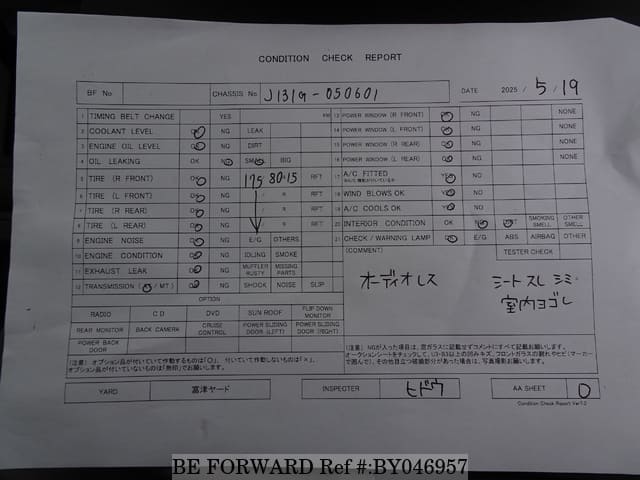 CONDITION CHECK REPORT
BF No CHASSIS No J131G-050601 DATE 2025 / 5/19
1 TIMING BELT CHANGE YES KM
2 COOLANT LEVEL OK NG LEAK
3 ENGINE OIL LEVEL OK NG DIRT
4 OIL LEAKING OK NG SMALL BIG
5 TIRE (R FRONT) OK NG 175 / 80 R 15 RFT
6 TIRE (L FRONT) OK NG / R RFT
7 TIRE (R REAR) OK NG / R RFT
8 TIRE (L REAR) OK NG / R RFT
9 ENGINE NOISE OK NG E/G OTHERS
10 ENGINE CONDITION OK NG IDLING SMOKE
11 EXHAUST LEAK OK NG MUFFLER RUSTY MISSING PARTS
12 TRANSMISSION (AT / MT) OK NG SHOCK NOISE SLIP
OPTION
RADIO CD DVD SUN ROOF FLIP DOWN MONITOR
REAR MONITOR BACK CAMERA CRUISE CONTROL POWER SLIDING DOOR (LEFT) POWER SLIDING DOOR (RIGHT)
POWER BACK DOOR
(注意) オプション品が付いていて作動するものは「○」、付いていて作動しないものは「×」、
オプション品が付いていないものは「無印」でお願いします。
13 POWER WINDOW (R FRONT) OK NG NONE
14 POWER WINDOW (L FRONT) OK NG NONE
15 POWER WINDOW (R REAR) OK NG NONE
16 POWER WINDOW (L REAR) OK NG NONE
17 A/C FITTED YES NO
18 WIND BLOWS OK YES NO
19 A/C COOLS OK YES NO
20 INTERIOR CONDITION OK NG DIRT SMOKING SMELL OTHER SMELL
21 CHECK / WARNING LAMP OK E/G ABS AIRBAG OTHER
(COMMENT) TESTER CHECK
オーディオレス
シートスレ シミ
室内ヨゴレ
(注意) NGが入った項目は、窓ガラスに記載せずコメントにすべて記載お願いします。
YARD 富津ヤード INSPECTER ヒドウ AA SHEET 0
Condition Check Report Ver7.0
BE FORWARD Ref #:BY046957